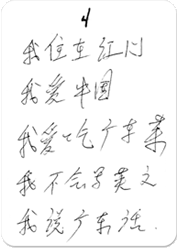 4
我住在江门
我爱中国
我爱吃广东菜
我不会写英文
我说广东话.